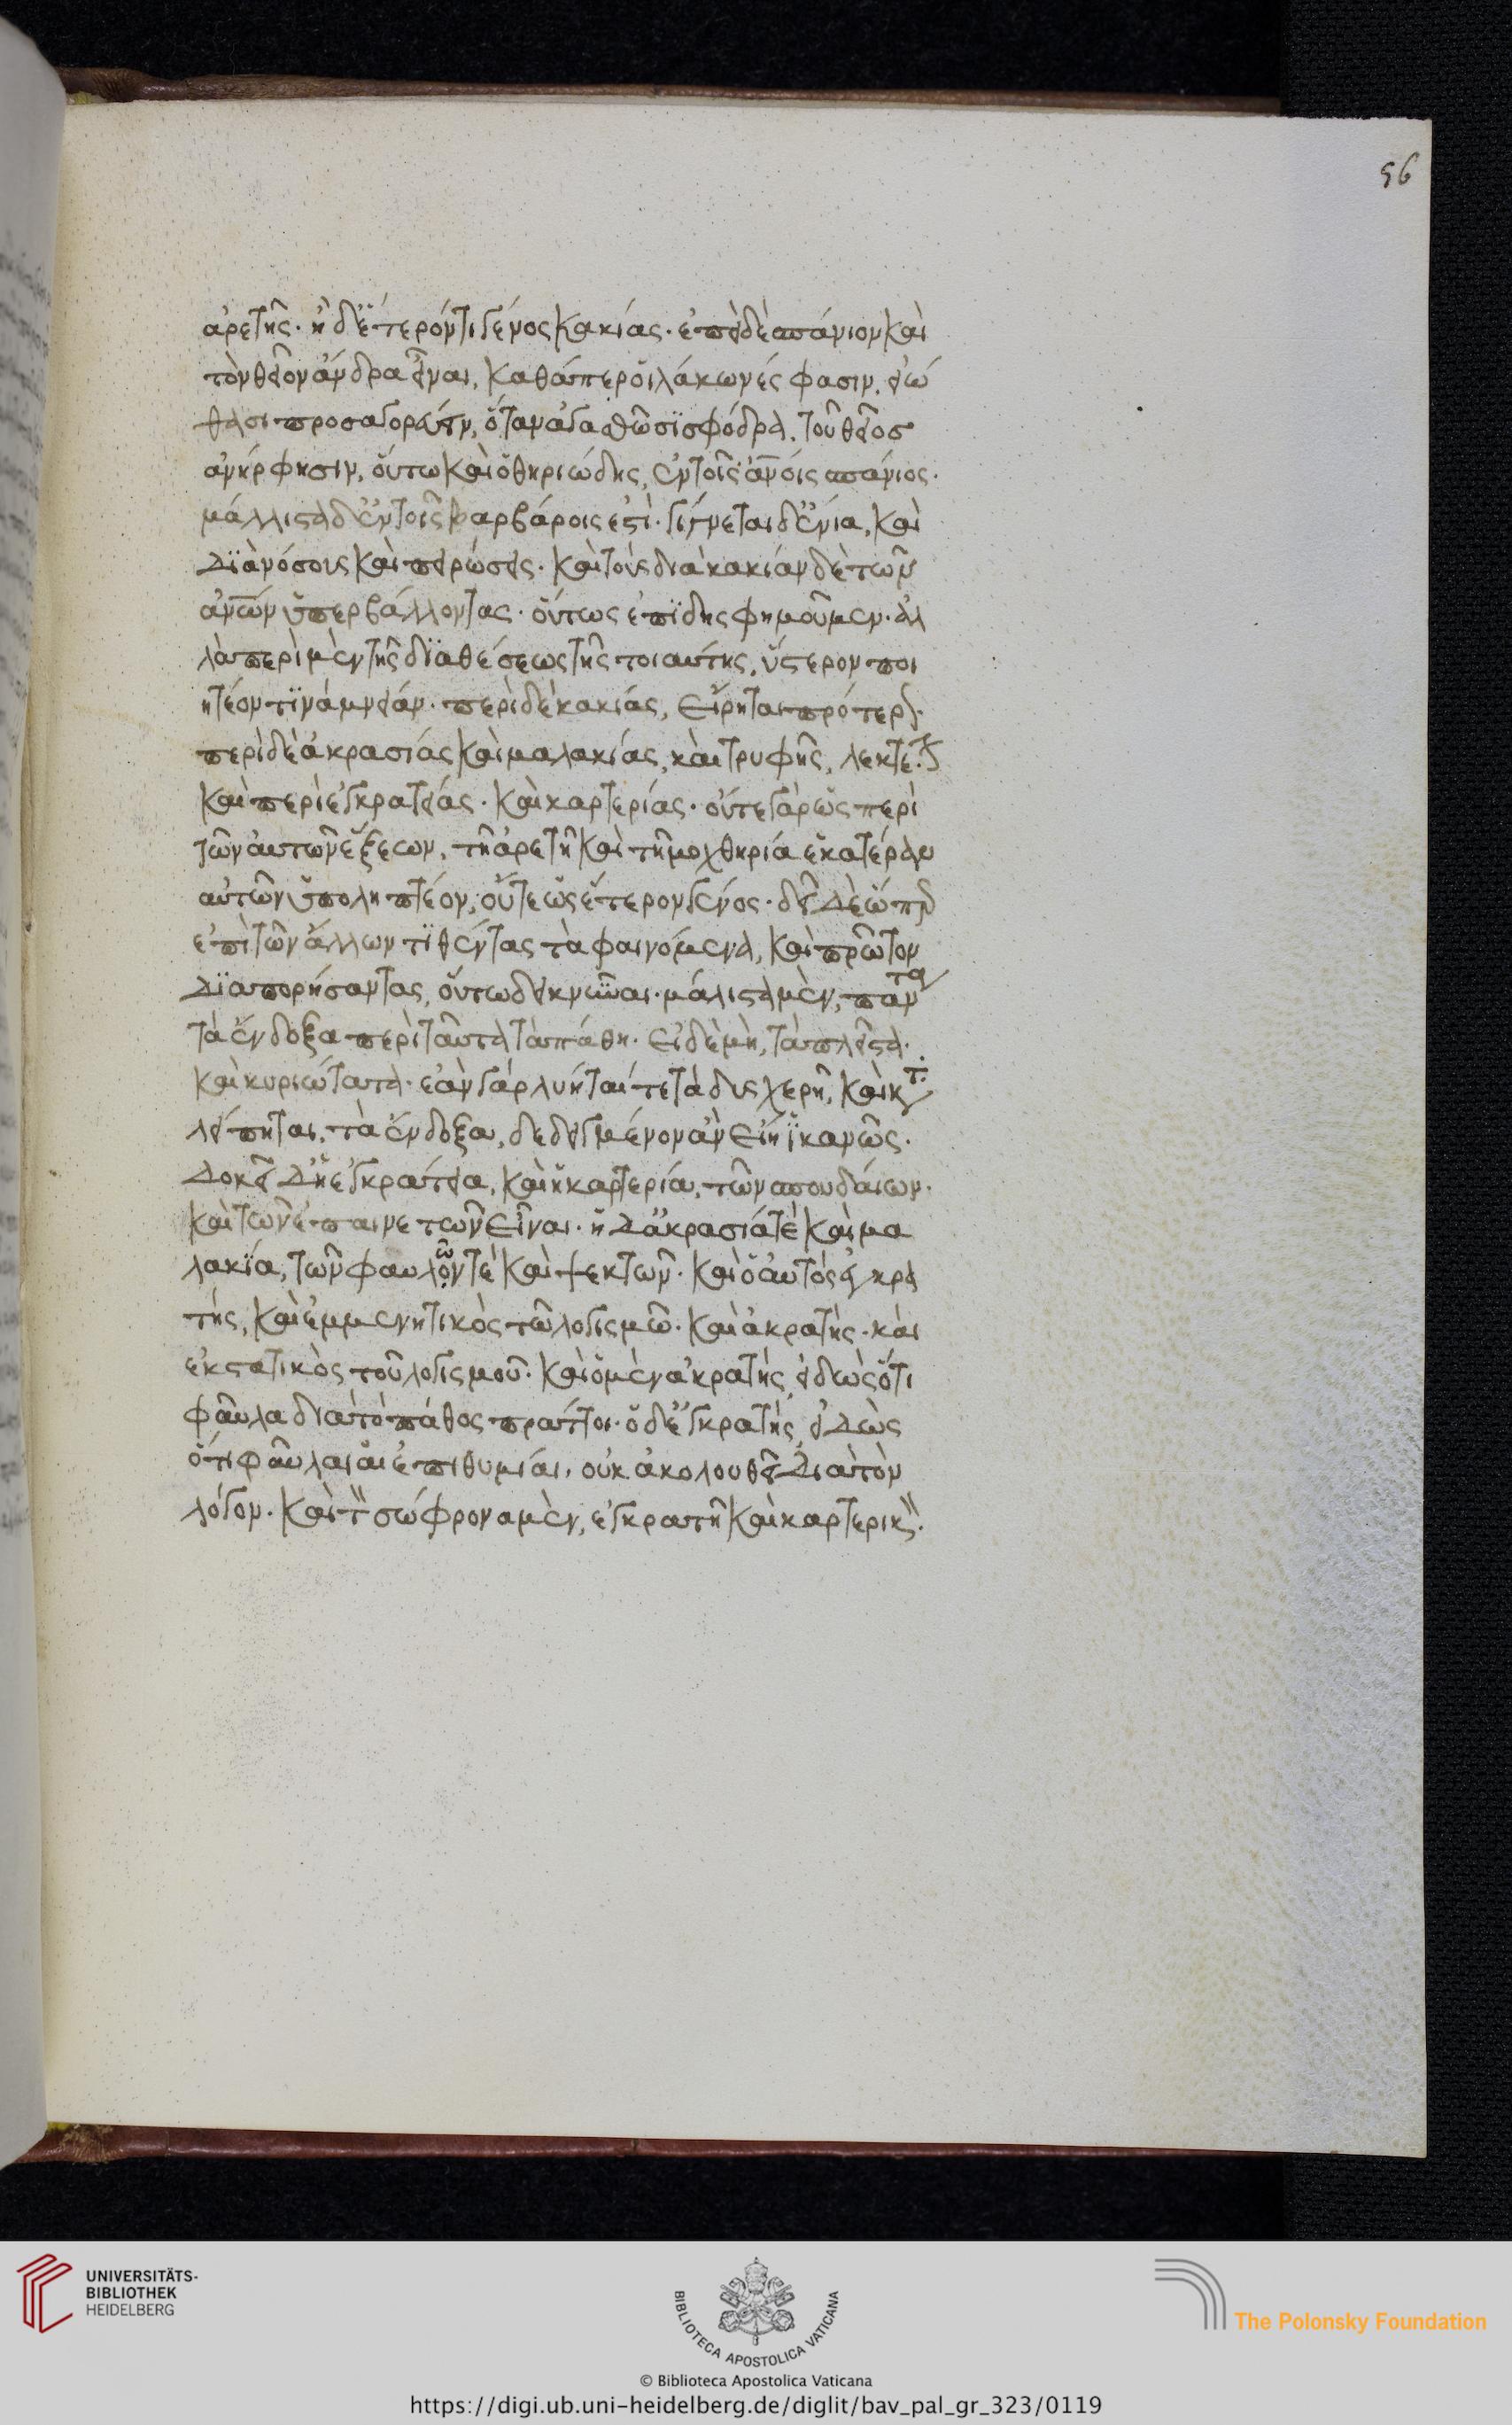 56
ἀρετῆς· ἡ δ' ἕτερόν τι γένος κακίας· ἐπεὶ δὲ σπάνιον καὶ
τὸν θεῖον ἄνδρα εἶναι, καθάπερ οἱ λάκωνές φασιν, εἰώ
θασι προσαγορεύειν, ὅταν ἀγασθῶσι σφόδρα, τοῦ θεῖος
ἀνήρ φησιν, οὕτω καὶ ὁ θηριώδης, ἐν τοῖς ἀνοις σπάνιος·
μάλλιστα δ' ἐν τοῖς βαρβάροις ἐστὶ· γίγνεται δ' ἔνια, καὶ
διὰ νόσους καὶ πειρώσεις· καὶ τοὺς διὰ κακίαν δὲ τῶν
ἀνων ὑπερβάλλοντας· οὕτως ἐπιδης φημοῦμεν· ἀλ
λὰ περὶ μὲν τῆς διαθέσεως τῆς τοιαύτης, ὕστερον ποι
ητέον τινά μνείαν· περὶ δὲ κακίας, εἴρηται πρότερον·
περὶ δὲ ἀκρασίας καὶ μαλακίας, καὶ τρυφῆς, λεκτέον
καὶ περὶ ἐγκρατείας· καὶ καρτερίας· οὔτε γὰρ ὡς περὶ
τῶν αὐτῶν ἕξεων, τῆ ἀρετῆ καὶ τῆ μοχθηρία ἑκατέραν
αὐτῶν ὑποληπτέον, οὔτε ὡς ἕτερον γένος· δεῖ δὲ ὥσπερ
ἐπὶ τῶν ἄλλων τιθέντας τὰ φαινόμενα, καὶ πρῶτον
διαπορήσαντας, οὕτω δεικνύναι· μάλιστα μὲν, πάντα
τὰ ἔνδοξα περὶ ταῦτα τὰ πάθη· εἰ δὲ μὴ, τὰ πλεῖστα·
καὶ κυριώτατα· ἐὰν γὰρ λυήται τε τὰ δυσχερῆ, καὶ κατ
λείπηται, τὰ ἔνδοξα, δεδειγμένον ἂν εἴη ἱκανῶς·
δοκεῖ δ' ἡ ἐγκράτεια, καὶ ἡ καρτερία, τῶν σπουδαίων·
καὶ τῶν ἐπαινετῶν εἶναι· ἡ δ' ἀκρασία τὲ καὶ μα
λακία, τῶν φαυλόν τὲ καὶ ψεκτῶν· καὶ ὁ αὐτὸς ἐγκρα
τής, καὶ ἐμμενητικὸς τῶ λογισμῶ· καὶ ἀκρατής· καὶ
ἐκστατικὸς τοῦ λογισμοῦ· καὶ ὁ μὲν ἀκρατής, εἰδὼς ὅτι
φαῦλα διὰ τὸ πάθος πράττοι· ὁ δ' ἐγκρατής, εἰδὼς
ὅτι φαῦλαι αἱ ἐπιθυμίαι, οὐκ ἀκολουθεῖ διὰ τὸν
λόγον· καὶ τὸν σώφρονα μὲν, ἐγκρατῆ καὶ καρτερικόν·
UNIVERSITÄTS-
BIBLIOTHEK
HEIDELBERG
BIBLIOTECA APOSTOLICA VATICANA
The Polonsky Foundation
© Biblioteca Apostolica Vaticana
https://digi.ub.uni-heidelberg.de/diglit/bav_pal_gr_323/0119